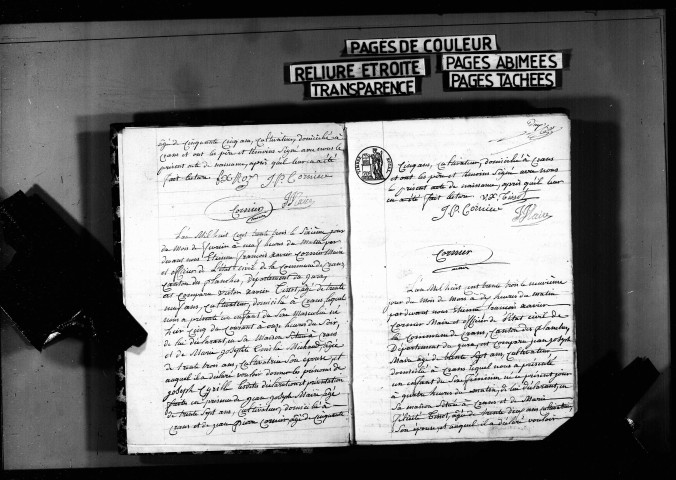 PAGES DE COULEUR
RELIURE ETROITE PAGES ABIMEES
TRANSPARENCE PAGES TACHEES
âgé de Cinquante Cinq ans, Cultivateur, domicilié à
Crans et ont les père et témoins Signé avec nous le
présent acte de naissance, après qu'il leur en a été
fait lecture J.P. Cornier
Cornier
L'an Mil huit Cent trente trois le Sixième jour
du Mois de à neuf heures du Matin par
devant nous Etienne François Xavier Cornier Maire
et officier de l'état Civil de la Commune de Crans
Canton des planches, Département du Jura,
est Comparu Victor Xavier âgé de trente
neuf ans, Cultivateur, domicilié à Crans, lequel
nous a présenté un enfant du Sexe Masculin né
hier Cinq du Courant à onze heures du Soir,
de lui déclarant, en sa Maison à Crans
et de Marie Josephte Michaud, âgée
de trente trois ans, Cultivatrice Son épouse, et
auquel il a déclaré vouloir donner les prénoms de
joseph Cyrille les dites déclaration et présentation
faites en présence de jean joseph Maire âgé
de trente Sept ans, Cultivateur, domicilié à
Crans et de jean pierre Cornier, âgé de Cinquante
Cinq ans, Cultivateur, domicilié à Crans
et ont les père et témoins Signé avec nous
le présent acte de naissance, après qu'il leur
en a été fait lecture
J.P. Cornier
Cornier
L'an Mil huit cent trente trois le neuvième
jour du Mois de Mars à dix heures du Matin
par devant nous Etienne françois Xavier
Cornier Maire et officier de l'état Civil de
la Commune de Crans, Canton des planches,
Département du jura, est Comparu jean joseph
Maire âgé de trente Sept ans, Cultivateur
domicilié à Crans lequel nous a présenté
un enfant du Sexe féminin né le présent jour
à quatre heures du Matin, de lui déclarant, en
Sa maison à Crans et de Marie
âgée de trente deux ans Cultivatrice,
Son épouse, et auquel il a déclaré vouloir